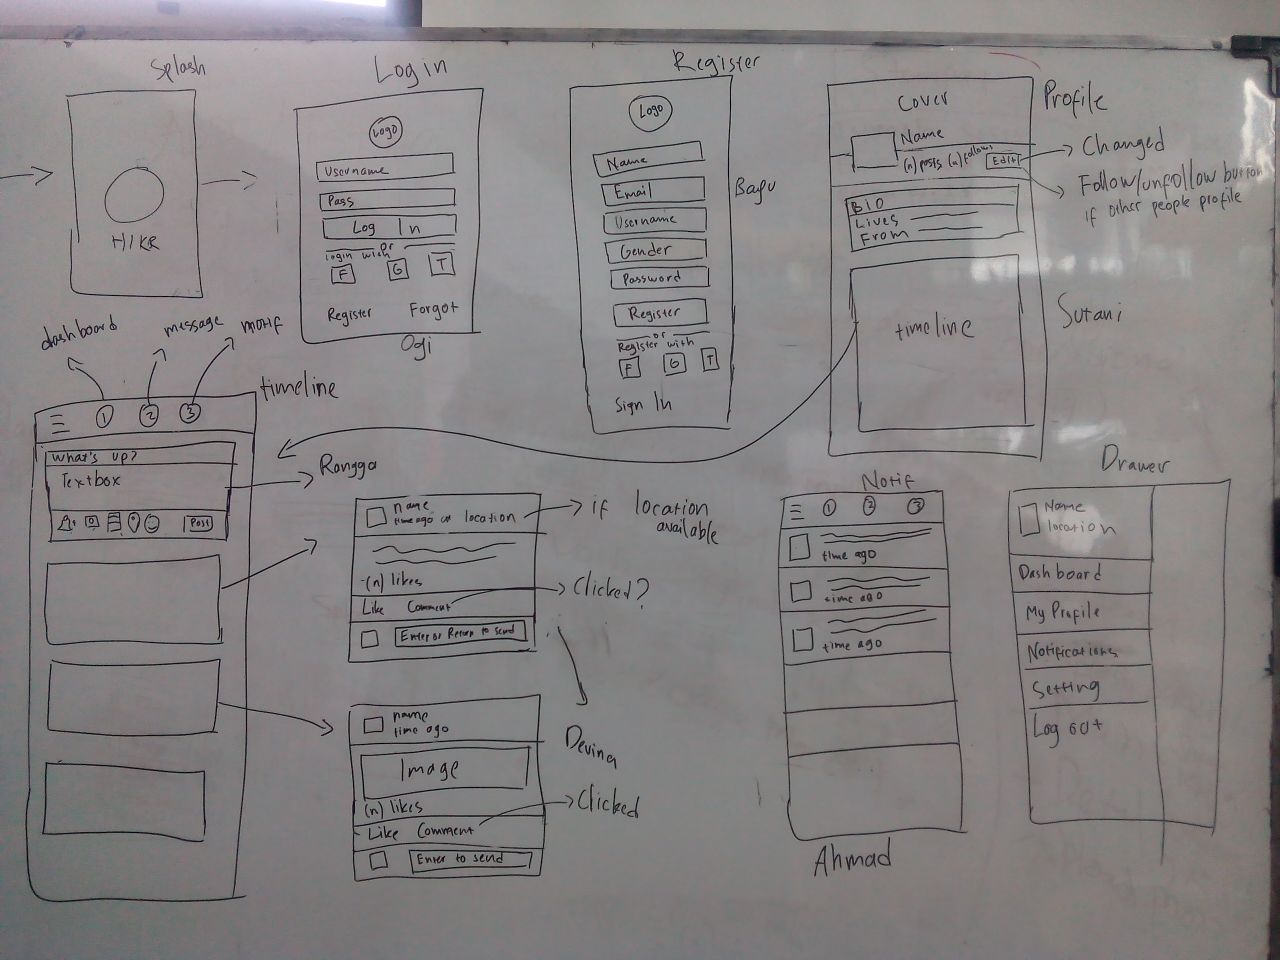 Splash
HIKE
Login
Logo
Username
Pass
Log In
or
login with
F G T
Register Forgot
Ogi
Register
Logo
Name
Email
Username
Gender
Password
Register
or
Register with
F G T
Sign In
Bayu
Profile
Cover
Name
(n) posts (n) follows
Edit
Changed
Follow/unfollow button
if other people profile
Bio
Lives
From
timeline
Sutani
dashboard
message
notif
timeline
1 2 3
What's up?
Textbox
Post
Rangga
name
time ago at location
if location
available
(n) likes
Like Comment
Clicked?
Enter or Return to send
name
time ago
Image
(n) likes
Like Comment
Clicked
Enter to send
Devina
Notif
1 2 3
time ago
time ago
time ago
Ahmad
Drawer
Name
location
Dashboard
My Profile
Notifications
Setting
Log out